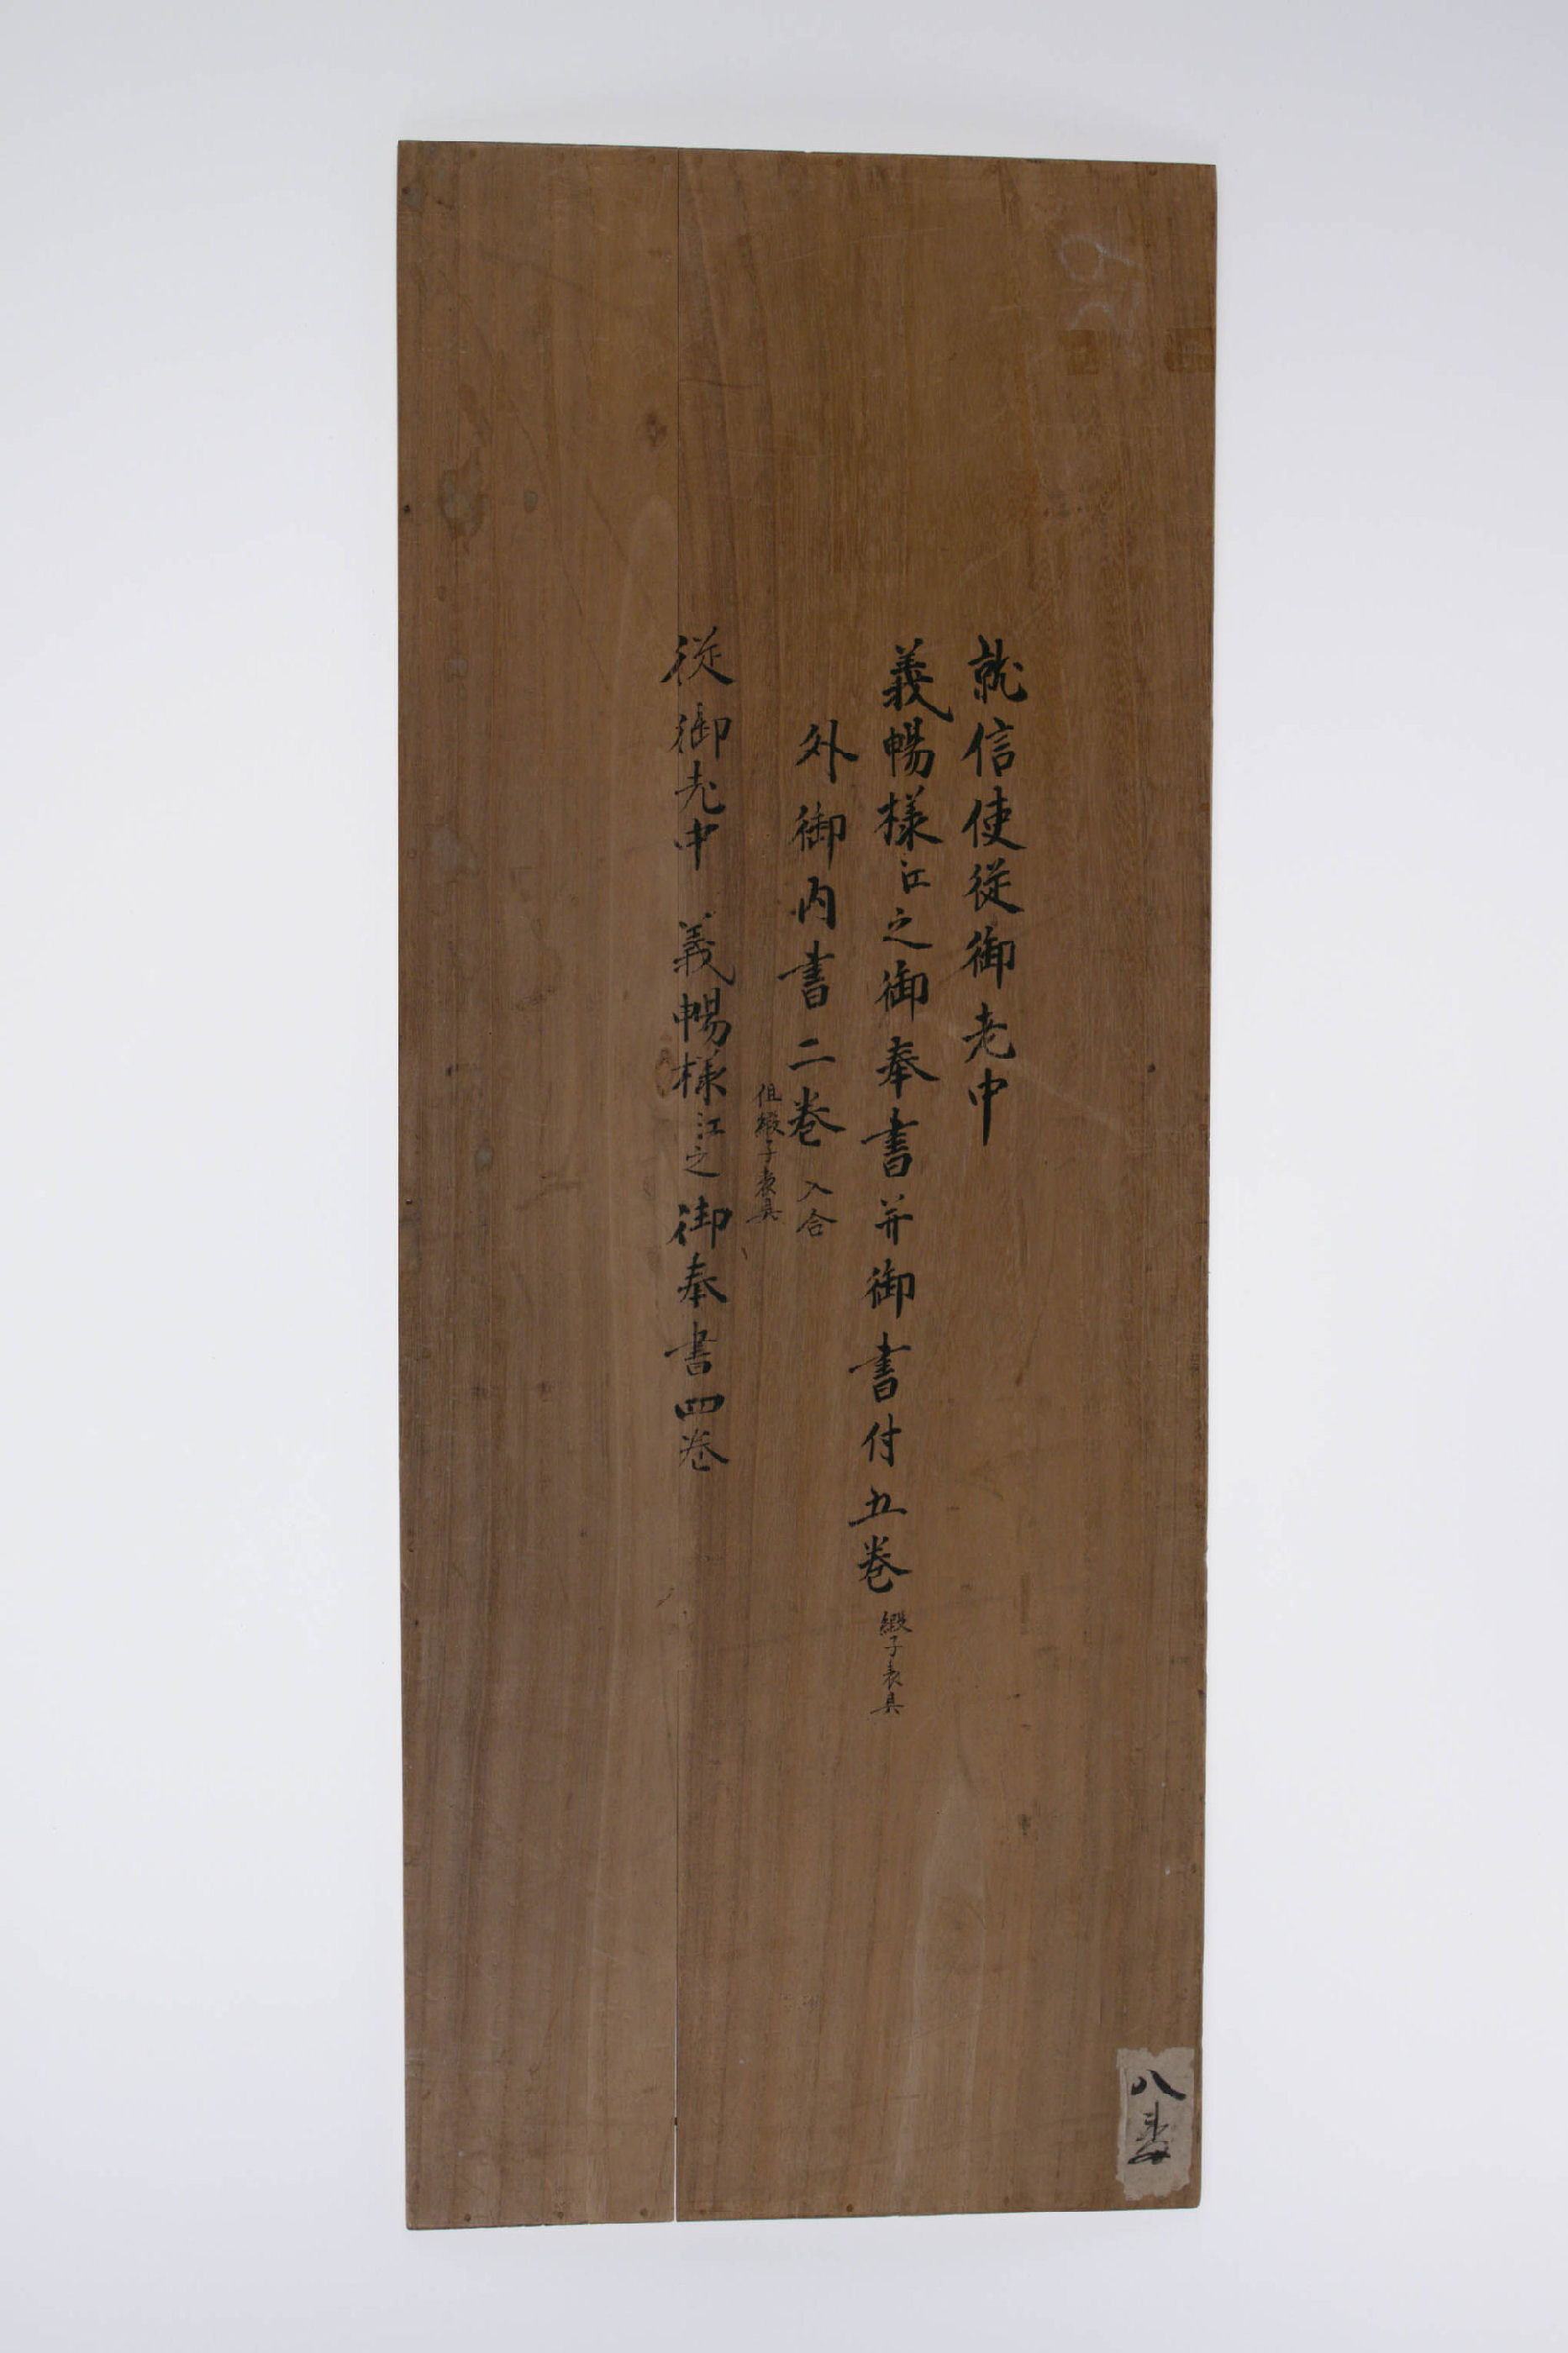 就信使従御老中
義暢様江之御奉書并御書付五巻 緞子表具
外御内書二巻 入合
但緞子表具
従御老中 義暢様江之御奉書四巻
八